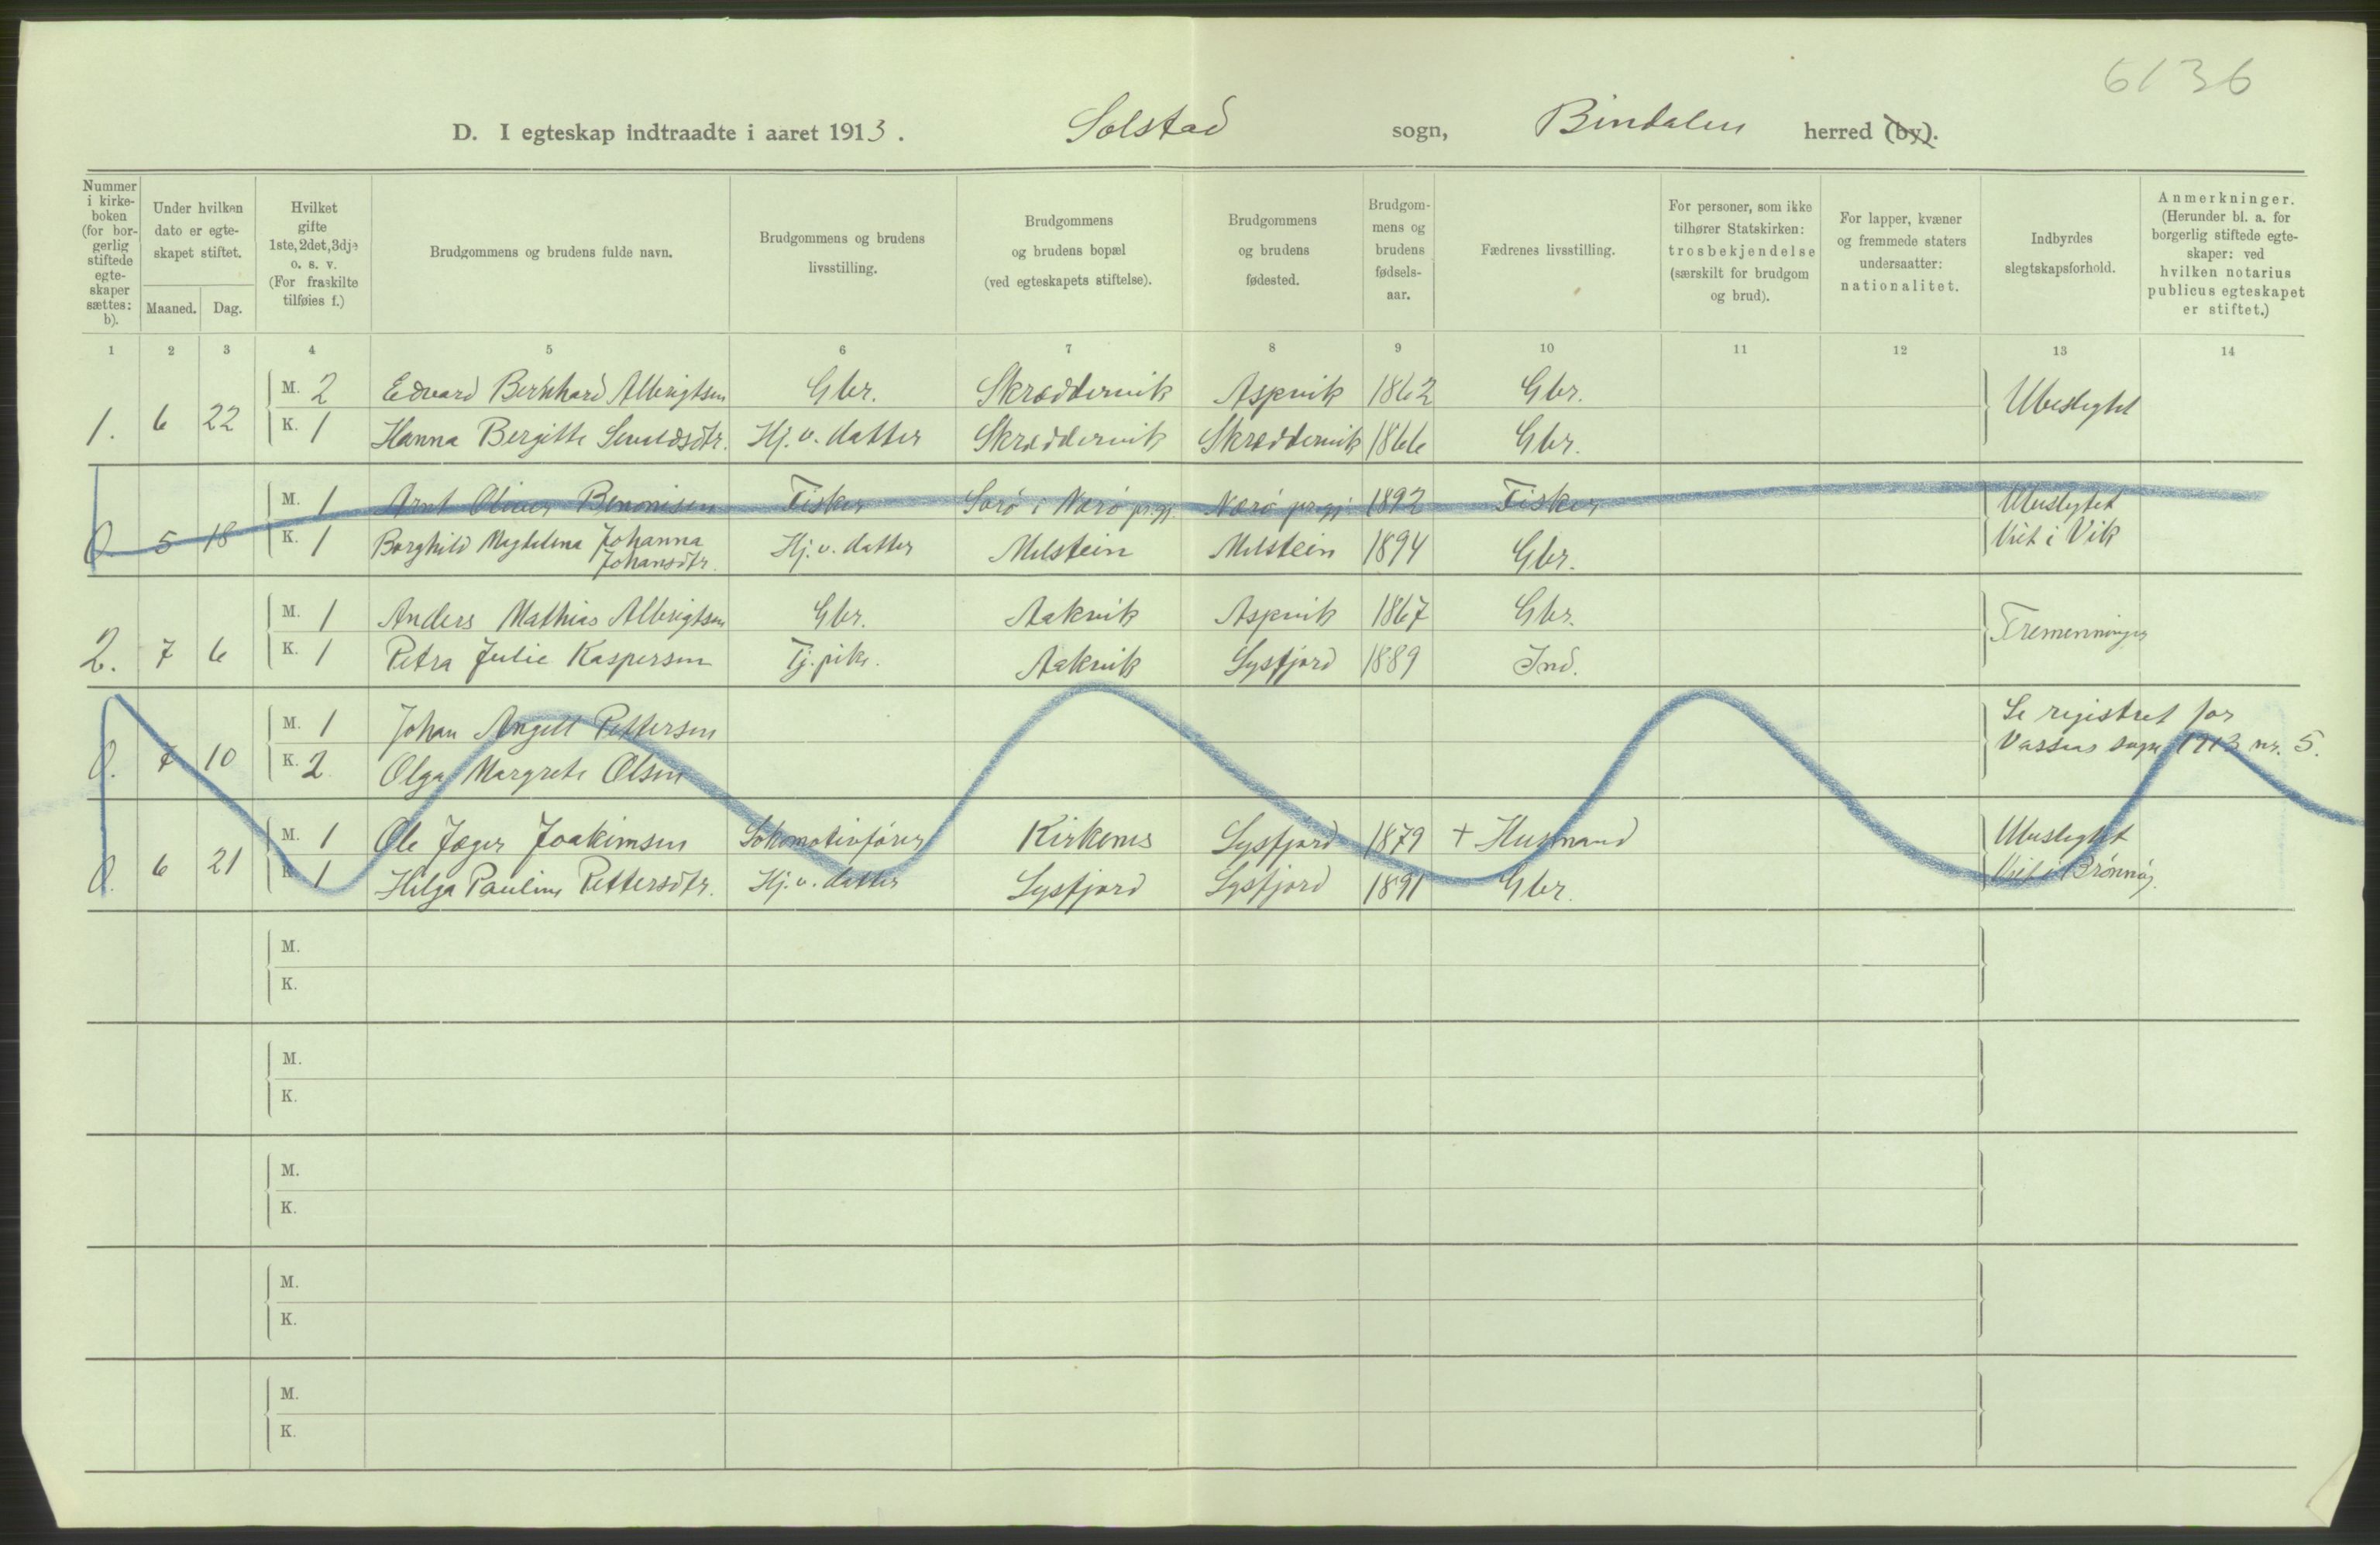 6136
D. I egteskap indtraadte i aaret 1913. Solstad sogn, Bindalen herred (by).
Nummer i kirke-boken (for bor-gerlig stiftede egte-skaper sættes: b).
Under hvilken dato er egte-skapet stiftet.
Maaned. Dag.
Hvilket gifte 1ste, 2det, 3dje o. s. v. (For fraskilte tilføies f.)
Brudgommens og brudens fulde navn.
Brudgommens og brudens livsstilling.
Brudgommens og brudens bopæl (ved egteskapets stiftelse).
Brudgommens og brudens fødested.
Brudgom-mens og brudens fødsels-aar.
Fædrenes livsstilling.
For personer, som ikke tilhører Statskirken: trosbekjendelse (særskilt for brudgom og brud).
For lapper, kvæner og fremmede staters undersaatter: nationalitet.
Indbyrdes slegtskapsforhold.
Anmerkninger. (Herunder bl. a. for borgerlig stiftede egte-skaper: ved hvilken notarius publicus egteskapet er stiftet.)
1 2 3 4 5 6 7 8 9 10 11 12 13 14
M. 2 Edvard Bernhard Albrigtsen Gbr. Skræddervik Aspvik 1862 Gbr. Ubeslegtet
1. 6 22 K. 1 Hanna Bergitte Hj.v. datter Skræddervik Skræddervik 1866 Gbr.
M. 1 Arnt Oliver Benonisen Fisker i Nærö pr.gj. Nærö pr.gj. 1892 Fisker Ubeslegtet
0. 5 18 K. 1 Borghild Magdalena Johanna Johansdtr. Hj.v. datter Melstein Melstein 1894 Gbr. Viet i Vik
M. 1 Anders Mathias Albrigtsen Gbr. Aakvik Aspvik 1867 Gbr. Tremenninger
2. 7 6 K. 1 Petra Julie Kaspersen Tj. pike. Aakvik Sysfjord 1889 Ind.
M. 1 Johan Angell Pettersen Se registret for
0. 7 10 K. 2 Olga Margrete Olsen Vassaas sogn 1913 nr. 5.
M. 1 Ole Jæger Joakimsen Lokomotivfører Kirkenes Sysfjord 1879 + Husmand Ubeslegtet
0. 6 21 K. 1 Helga Pauline Pettersdtr. Hj.v. datter Sysfjord Sysfjord 1891 Gbr. Viet i Brönnöy.
M.
K.
M.
K.
M.
K.
M.
K.
M.
K.